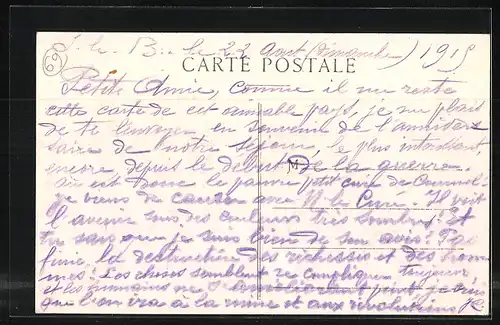 le 22 Aout (Dimanche) 1915
69
CARTE POSTALE
Petite Amie, comme il me reste
cette carte de cet aimable pays, je me plait
de te l'envoyer en souvenir de l'anniver
saire de notre séjour, le plus intéressant
encore depuis le début de la guerre.
M
est donc le pauvre petit curé de
je viens de causer avec M. le Curé. Il voit
l'avenir sous des couleurs très sombres. Et
tu sais que je suis bien de son avis! Pas
finie la destruction des richesses et des hom
mes! Les choses semblent se compliquer toujours
et les humains ne s'amélioreront point, je crois
que l'on ira à la ruine et aux révolutions